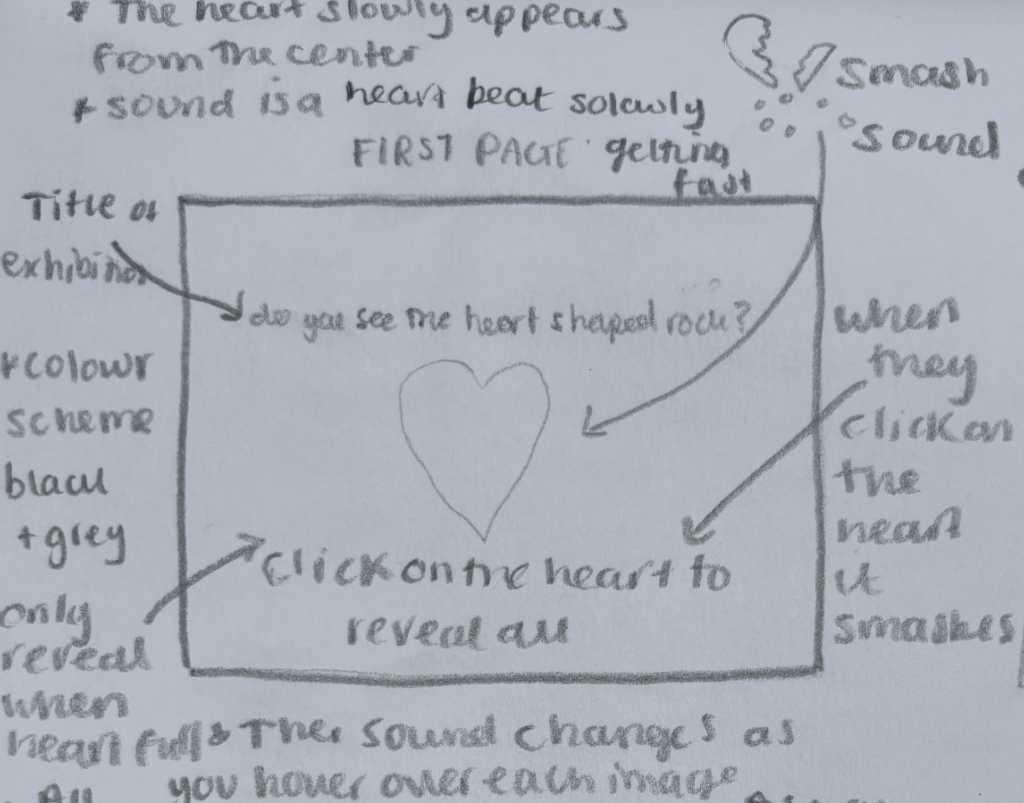 * The heart slowly appears
from the center
* sound is a heart beat solowly
FIRST PAGE getting
fast
Smash
Sound
Title of
exhibition
do you see the heart shaped rock?
* colowr
scheme
black
+ grey
when
they
click on
the
heart
it
smashes
Click on the heart to
reveal all
only
reveal
when
heart full
* The sound changes as
you hover over each image
All